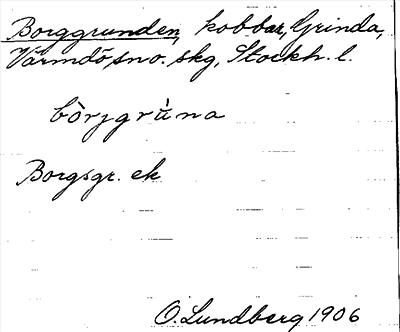 Borggrunden, kobbar, Grinda,
Värmdö sno. skg, Stockh. l.
bòrjgrùna
Borgsgr. ek
O. Lundberg 1906